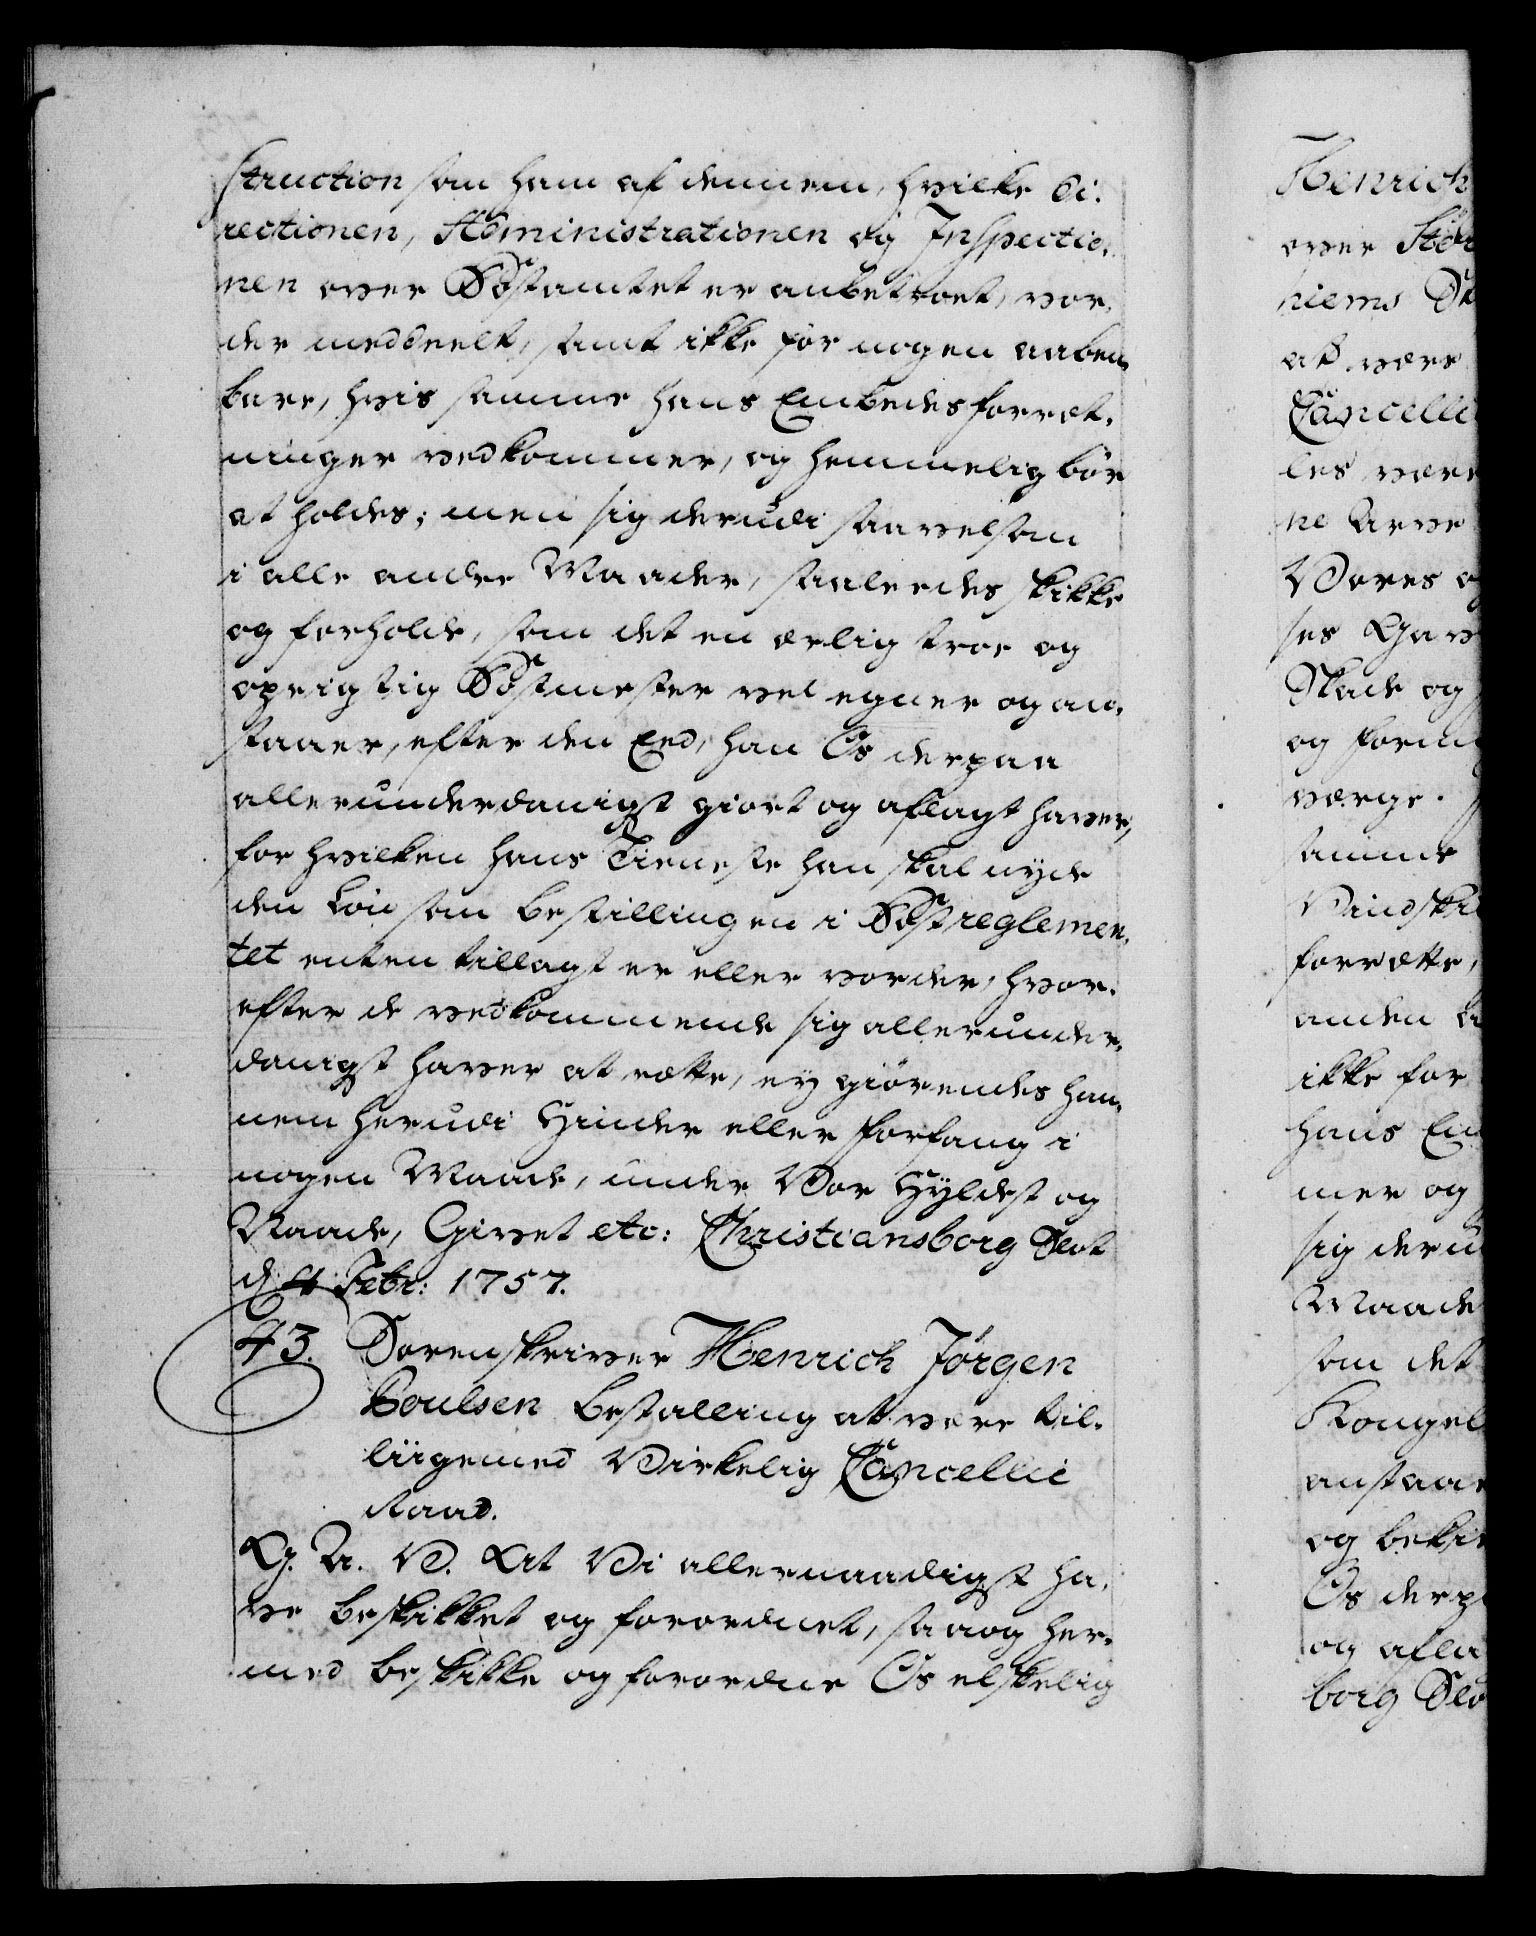 struction som ham af dennem, hvilke Di-
rectionen, Administrationen og Inspectio-
nen over Postamtet er anbetroet, vor-
der meddeelt, samt ikke for nogen aaben-
bare, hvis samme hans Embedes forret-
ninger vedkommer, og hemmelig bør
at holdes; men sig derudi saavelsom
i alle andre Maader, saaledes skikke
og forholde, som det en ærlig troe og
oprigtig Postmester vel egner og an-
staaer, efter den Eed, han Os derpaa
allerunderdanigst giort og aflagt haver,
for hvilken hans Tieneste han skal nyde
den Løn som bestillingen i Postreglemen-
tet enten tillagt er eller vorder, hvor-
efter de vedkommende sig allerunder-
danigst haver at rette, ey giørendes han-
nem herudi Hinder eller forfang i
nogen Maade, under Vor Hyldest og
Naade, Givet etc: Christiansborg Slot
d. 4 Febr: 1757.
43. Sorenskriver Henrich Jørgen
Poulsen Bestalling at være til-
liigemed Virkelig Cancellie
Raad.
G. A. V. At Vi allernaadigst ha-
ve beskikket og forordnet, saa og her-
med beskikke og forordne Os elskelig
Henrich
over Stør
hiems
at være
Cancelli
les være
ne Arve
Vores og
ses Gavn
Skade og
og
værge.
samme
Vindski
forrette,
anden
ikke for
hans Em
mer og
sig deru
Maade
som det
Kongel
anstaae
og
Os derp
og afla
borg Slo